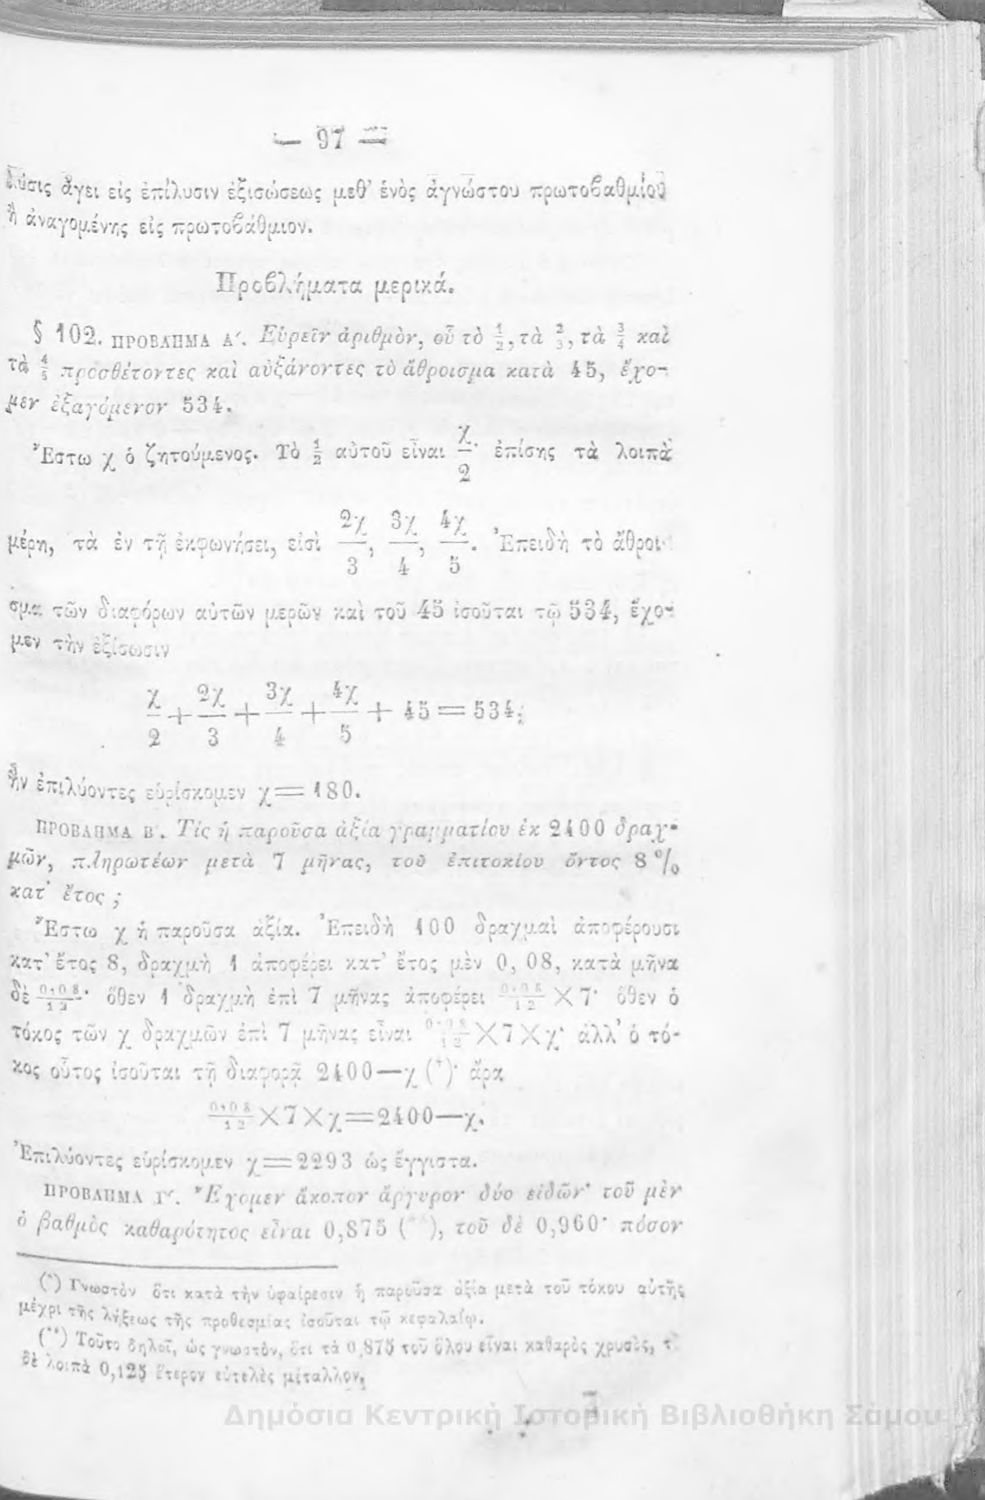 — 97 —
λύσις ἄγει εἰς ἐπίλυσιν ἐξισώσεως μεθ’ ἑνὸς ἀγνώστου πρωτοϐαθμίου
ἢ ἀναγομένης εἰς πρωτοϐάθμιον.
Προϐλήματα μερικά.
§ 102. ΠΡΟΒΛΗΜΑ Α′. Εὑρεῖν ἀριθμὸν, οὗ τὸ 1/2, τὰ 2/3, τὰ 3/4 καὶ
τὰ 4/5 προσθέτοντες καὶ αὐξάνοντες τὸ ἄθροισμα κατὰ 45, ἔχο-
μεν ἐξαγόμενον 534.
Ἔστω χ ὁ ζητούμενος. Τὸ 1/2 αὐτοῦ εἶναι χ/2· ἐπίσης τὰ λοιπὰ
μέρη, τὰ ἐν τῇ ἐκφωνήσει, εἰσὶ 2χ/3, 3χ/4, 4χ/5. Ἐπειδὴ τὸ ἄθροι-
σμα τῶν διαφόρων αὐτῶν μερῶν καὶ τοῦ 45 ἰσοῦται τῷ 534, ἔχο-
μεν τὴν ἐξίσωσιν
χ/2 + 2χ/3 + 3χ/4 + 4χ/5 + 45 = 534,
ἣν ἐπιλύοντες εὑρίσκομεν χ = 180.
ΠΡΟΒΛΗΜΑ Β′. Τίς ἡ παροῦσα ἀξία γραμματίου ἐκ 2400 δραχ-
μῶν, πληρωτέων μετὰ 7 μῆνας, τοῦ ἐπιτοκίου ὄντος 8 %
κατ’ ἔτος ;
Ἔστω χ ἡ παροῦσα ἀξία. Ἐπειδὴ 100 δραχμαὶ ἀποφέρουσι
κατ’ ἔτος 8, δραχμὴ 1 ἀποφέρει κατ’ ἔτος μὲν 0, 08, κατὰ μῆνα
δὲ 0,08/12· ὅθεν 1 δραχμὴ ἐπὶ 7 μῆνας ἀποφέρει 0,08/12 × 7· ὅθεν ὁ
τόκος τῶν χ δραχμῶν ἐπὶ 7 μῆνας εἶναι 0,08/12 × 7 × χ· ἀλλ’ ὁ τό-
κος οὗτος ἰσοῦται τῇ διαφορᾷ 2400 — χ (*)· ἄρα
0,08/12 × 7 × χ = 2400 — χ.
Ἐπιλύοντες εὑρίσκομεν χ = 2293 ὡς ἔγγιστα.
ΠΡΟΒΛΗΜΑ Γ′. Ἔχομεν ἄκοπον ἄργυρον δύο εἰδῶν· τοῦ μὲν
ὁ βαθμὸς καθαρότητος εἶναι 0,875 (**), τοῦ δὲ 0,960· πόσον
(*) Γνωστὸν ὅτι κατὰ τὴν ὑφαίρεσιν ἡ παροῦσα ἀξία μετὰ τοῦ τόκου αὐτῆς
μέχρι τῆς λήξεως τῆς προθεσμίας ἰσοῦται τῷ κεφαλαίῳ.
(**) Τοῦτο δηλοῖ, ὡς γνωστὸν, ὅτι τὰ 0,875 τοῦ ὅλου εἶναι καθαρὸς χρυσὸς, τὰ
δὲ λοιπὰ 0,125 ἕτερον εὐτελὲς μέταλλον.
7
Δημόσια Κεντρική Ιστορική Βιβλιοθήκη Σάμου